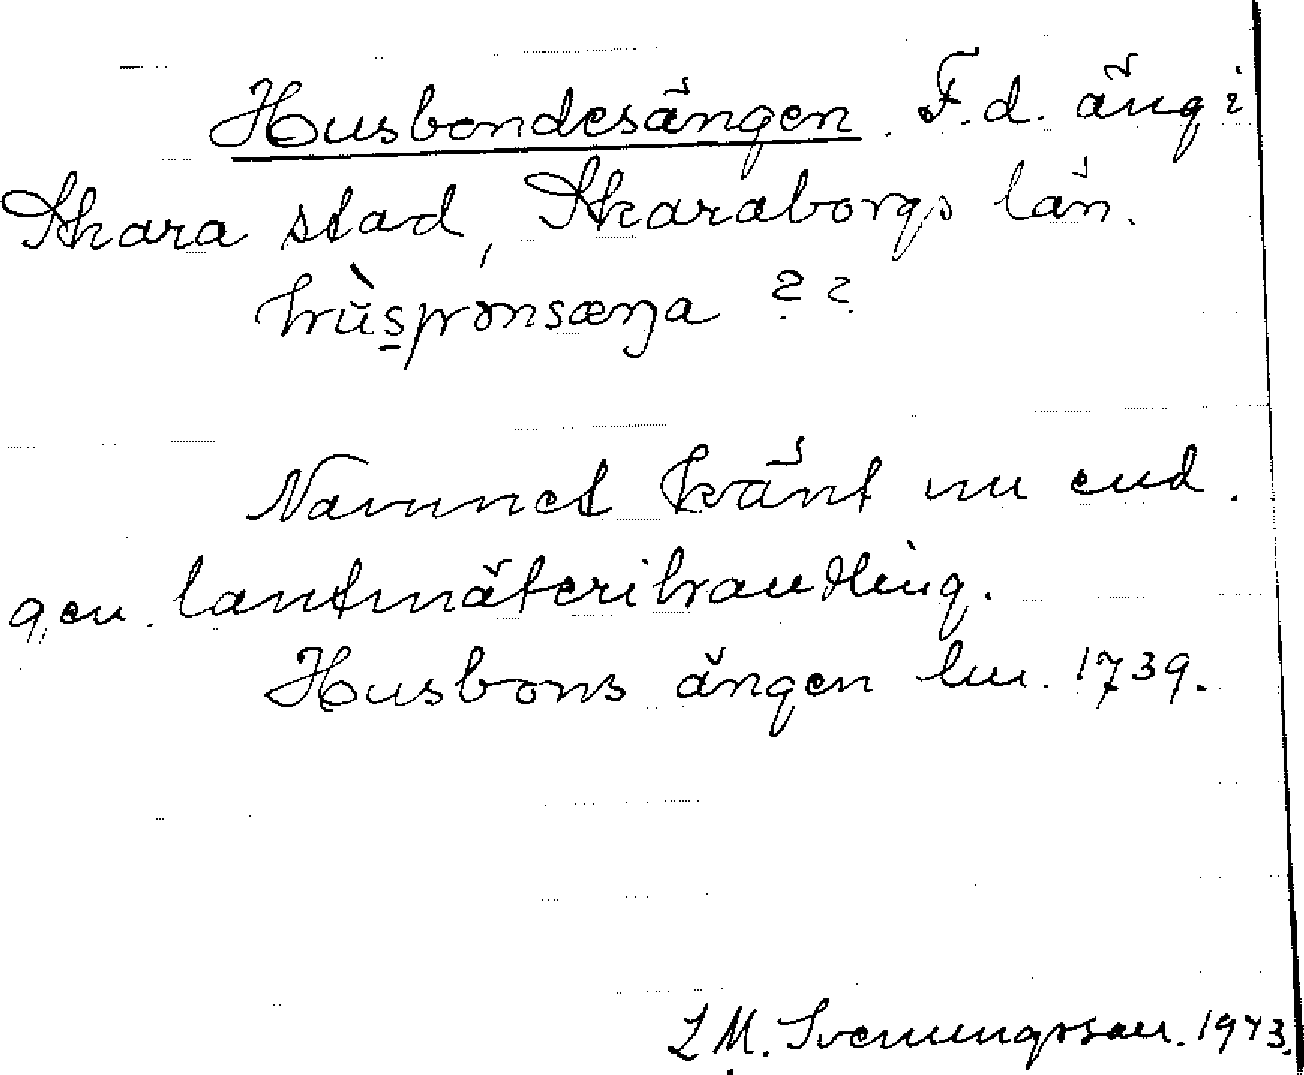 Husbondesängen. F.d. äng i
Skara stad, Skaraborgs län.
hùsponsæŋa ??
Namnet känt nu end.
gen. lantmäterihandling.
Husbons ängen lm. 1739.
L M. Svenungsson. 1943.